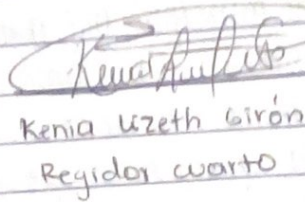 Kenia Lizeth Girón
Regidor cuarto